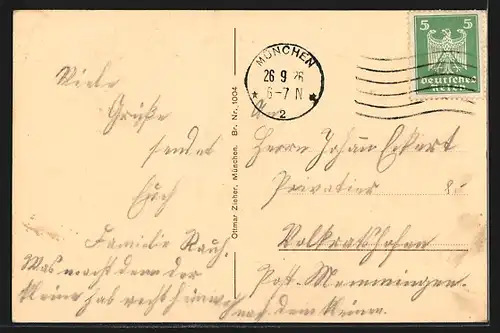 Viele
Grüße
sendet
Euch
Familie Rauh.
Was macht denn der
Kleine hab recht heimweh
nach dem kleinen.
Ottmar Zieher, München. Br. Nr. 1004
MÜNCHEN
26 9 26
6-7 N
2
5 5
Deutsches
Reich
An
Herrn Johann Eckart
Privatier
Volkratshofen
Post. Memmingen.